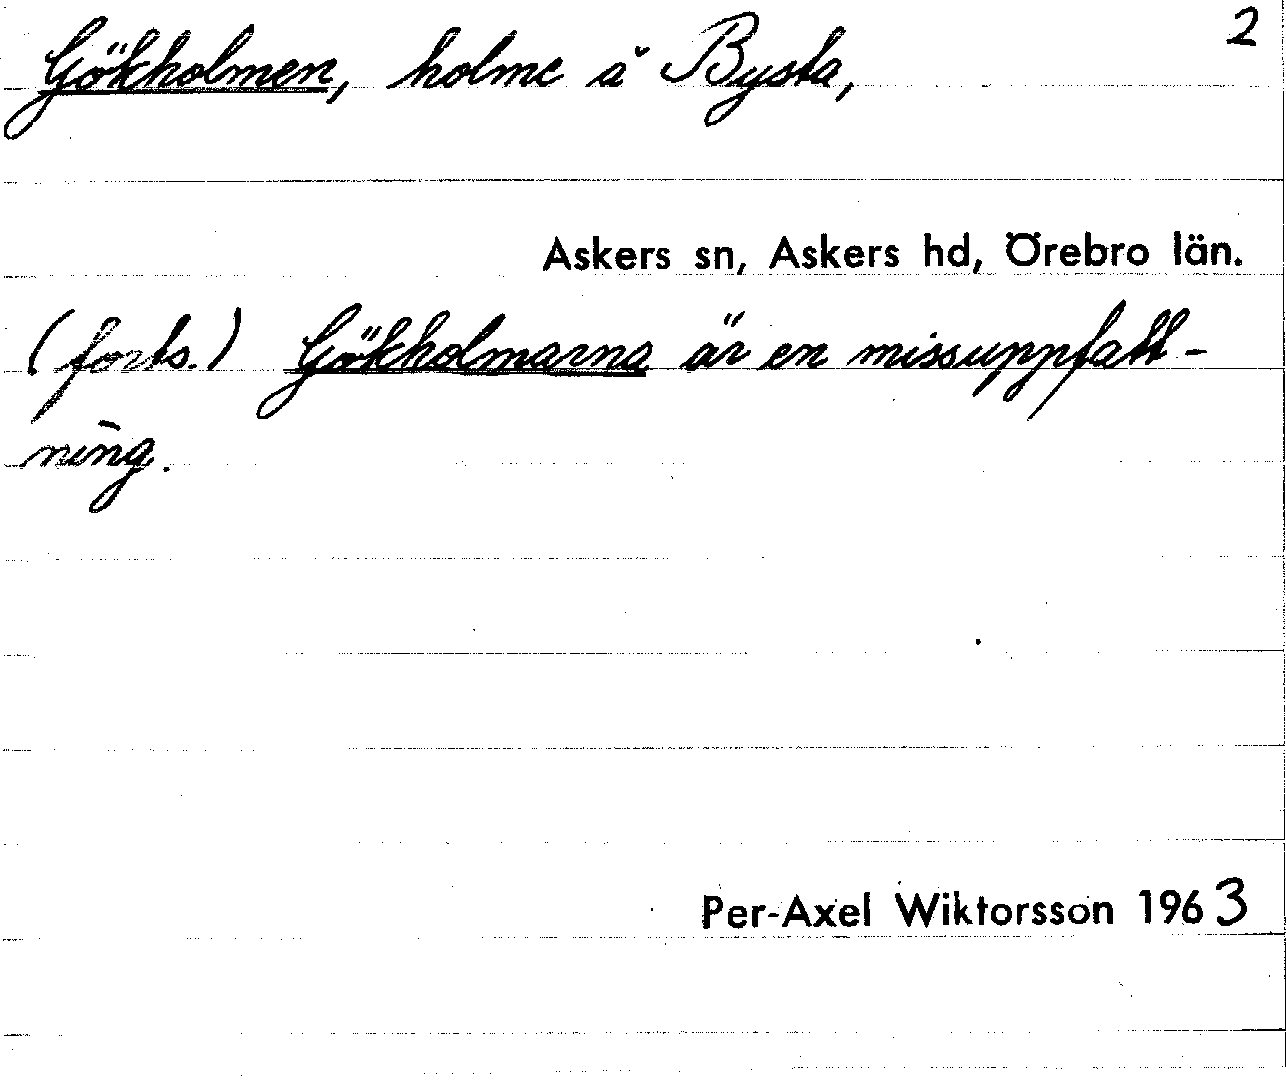 2
Gökholmen, holme å Bysta,
Askers sn, Askers hd, Örebro län.
(forts.) Gökholmarna är en missuppfatt-
ning.
Per-Axel Wiktorsson 1963